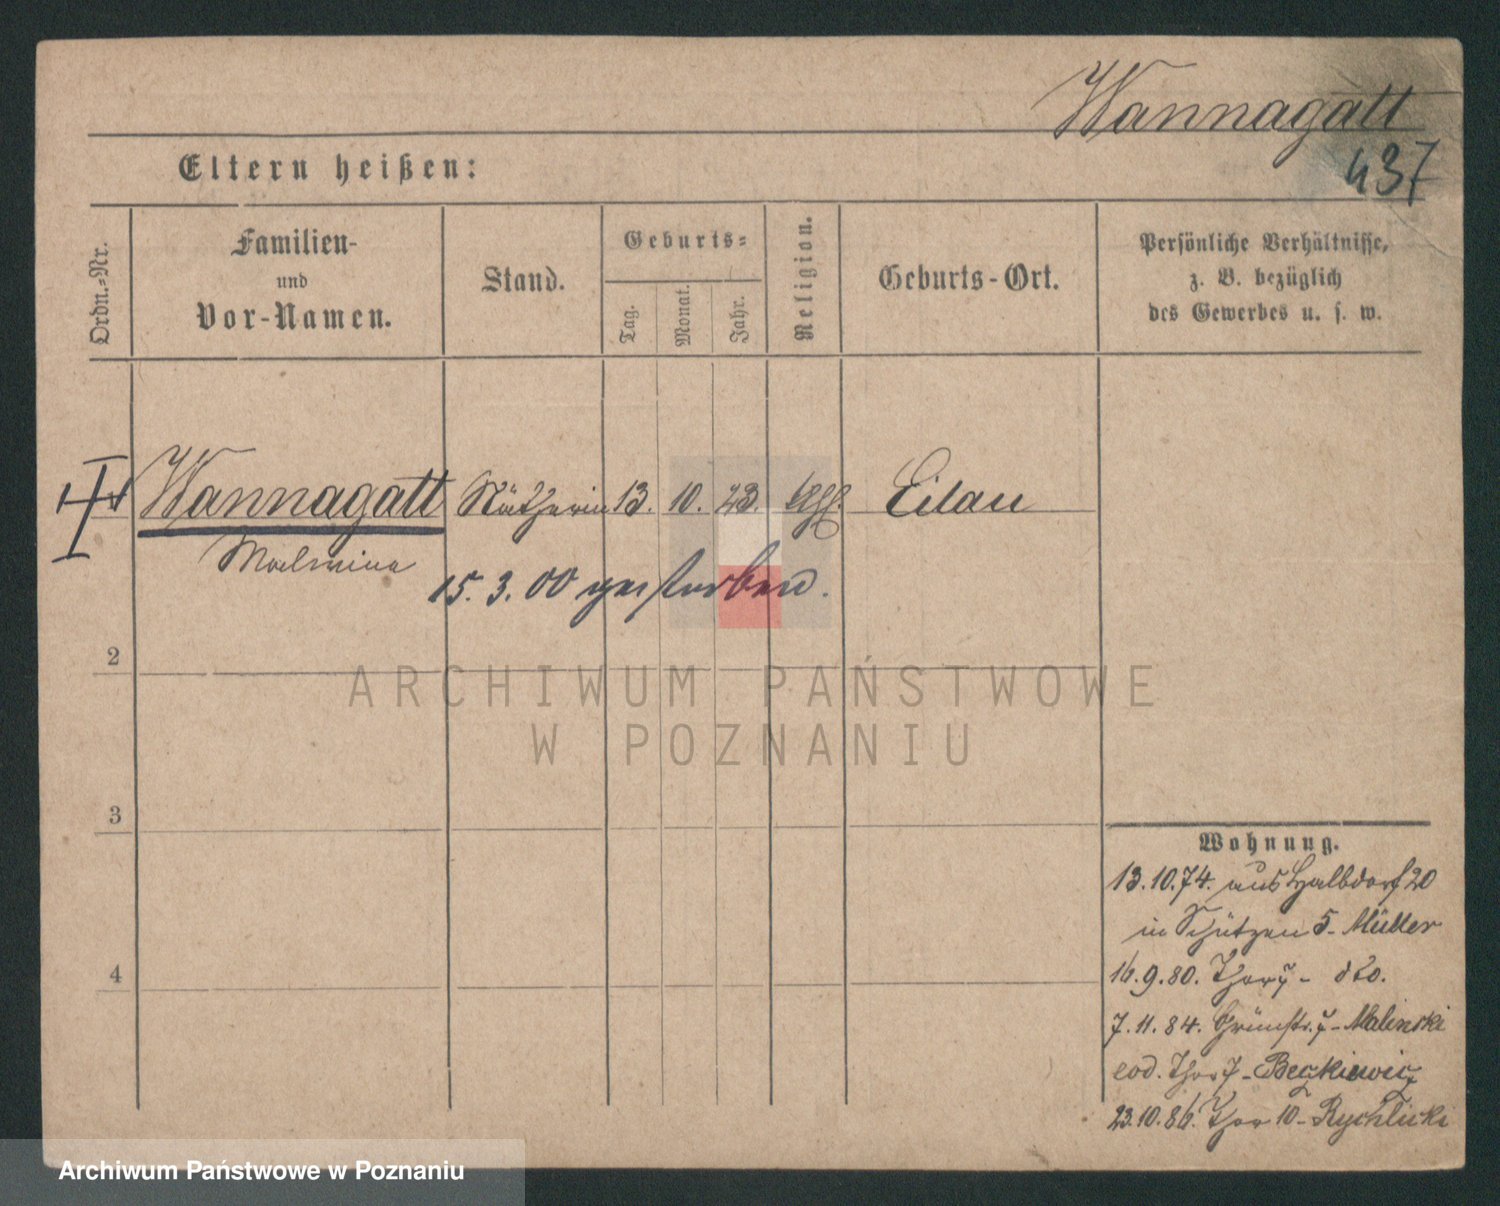 Wannagatt
437
Eltern heißen:
Ordn.-Nr.
Familien-
und
Vor-Namen.
Stand.
Geburts-
Tag.
Monat.
Jahr.
Religion.
Geburts-Ort.
Persönliche Verhältnisse,
z. B. bezüglich
des Gewerbes u. s. w.
Wannagatt Nätherin 13. 10. 23. Eilau
Malwina
15. 3. 00 gestorben.
2
3
4
Wohnung.
13.10.74. aus Halbdorf 20
in Schützen 5- Müller
16.9.80. Thor 7- dto.
7.11.84. Grünstr. 7- Malinski
eod. Thor 7- Beckiewicz
23.10.86. Thor 10- Rychlicki
ARCHIWUM PAŃSTWOWE
W POZNANIU
Archiwum Państwowe w Poznaniu